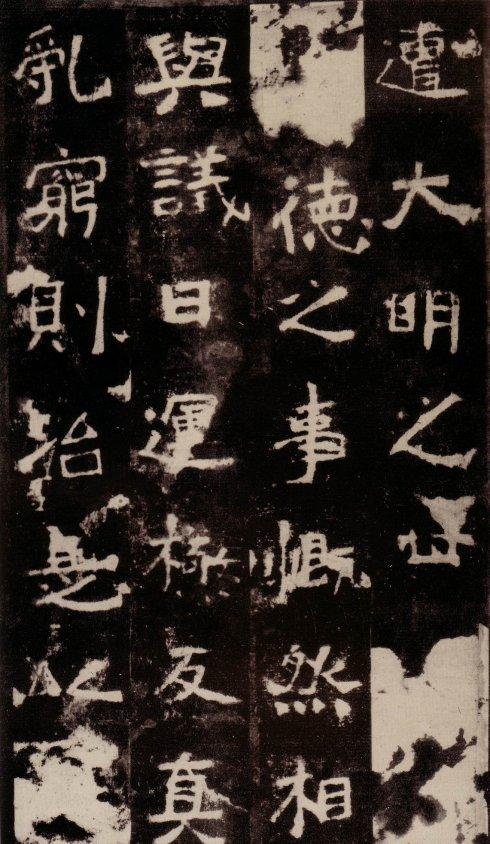 遭大明之世
德之事慨然相
與議曰運極反真
乱窮則治無以